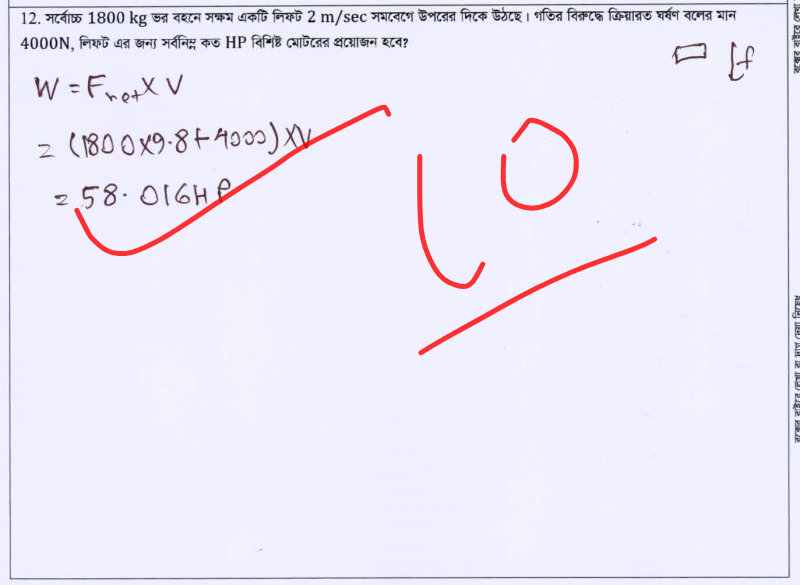 12. সর্বোচ্চ 1800 kg ভর বহনে সক্ষম একটি লিফট 2 m/sec সমবেগে উপরের দিকে উঠছে। গতির বিরুদ্ধে ক্রিয়ারত ঘর্ষণ বলের মান
4000N, লিফট এর জন্য সর্বনিম্ন কত HP বিশিষ্ট মোটরের প্রয়োজন হবে?
W = Fnet X V
= (1800X9.8+4000) XV
= 58.016HP
১০